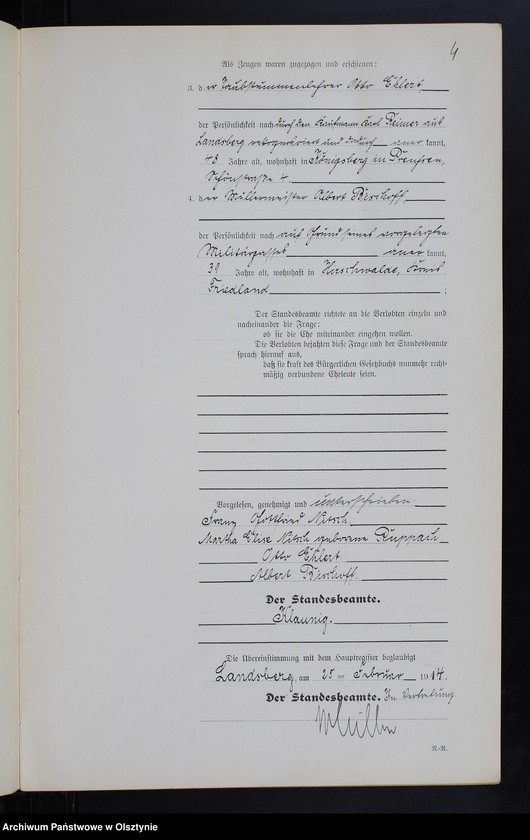 4
Als Zeugen waren zugezogen und erschienen:
3. der Taubstummenlehrer Otto Ehlert
der Persönlichkeit nach durch den Kaufmann Karl Reimer aus
Landsberg rekognosziert und dadurch aner kannt,
48 Jahre alt, wohnhaft in Königsberg in Preußen,
Schönstraße 4.
4. der Müllermeister Albert Bischoff
der Persönlichkeit nach auf Grund seines vorgelegten
Militärpasses aner kannt,
39 Jahre alt, wohnhaft in Hirschwalde, Kreis
Friedland ;
Der Standesbeamte richtete an die Verlobten einzeln und
nacheinander die Frage:
ob sie die Ehe miteinander eingehen wollen.
Die Verlobten bejahten diese Frage und der Standesbeamte
sprach hierauf aus,
daß sie kraft des Bürgerlichen Gesetzbuchs nunmehr recht-
mäßig verbundene Eheleute seien.
Vorgelesen, genehmigt und unterschrieben
Franz Gottlieb Nitsch
Martha Elise Nitsch geborene Ruppach
Otto Ehlert
Albert Bischoff.
Der Standesbeamte.
Klaunig.
Die Übereinstimmung mit dem Hauptregister beglaubigt
Landsberg, am 25 ten Februar 1914.
Der Standesbeamte. In Vertretung.
R.-R.
Archiwum Państwowe w Olsztynie